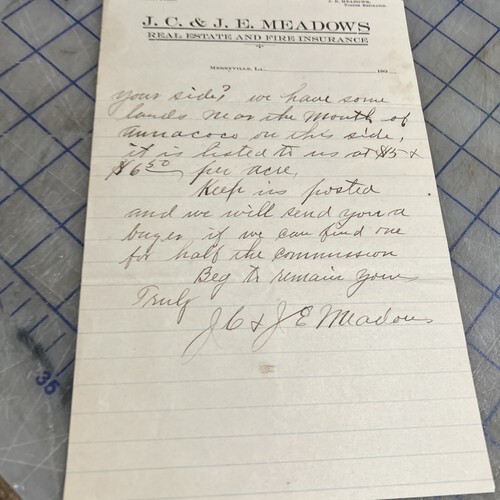 J. E. MEADOWS,
J. C. & J. E. MEADOWS
REAL ESTATE AND FIRE INSURANCE
MERRYVILLE, LA. 190
your side? we have some
lands near the mouth of
annacoco on this side,
it is listed to us at $5 &
$6.50 per acre,
Keep us posted
and we will send you a
buyer if we can find one
for half the commission
Beg to remain yours
Truly
J C & J E Meadows
35